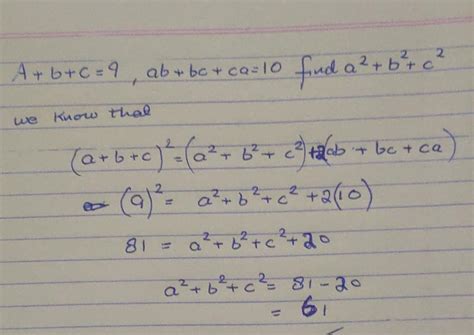 A+b+c=9, ab+bc+ca=10 find a²+b²+c²
we know that
(a+b+c)²=(a²+b²+c²)+2(ab+bc+ca)
(9)²= a²+b²+c²+2(10)
81 = a²+b²+c²+20
a²+b²+c²= 81-20
= 61